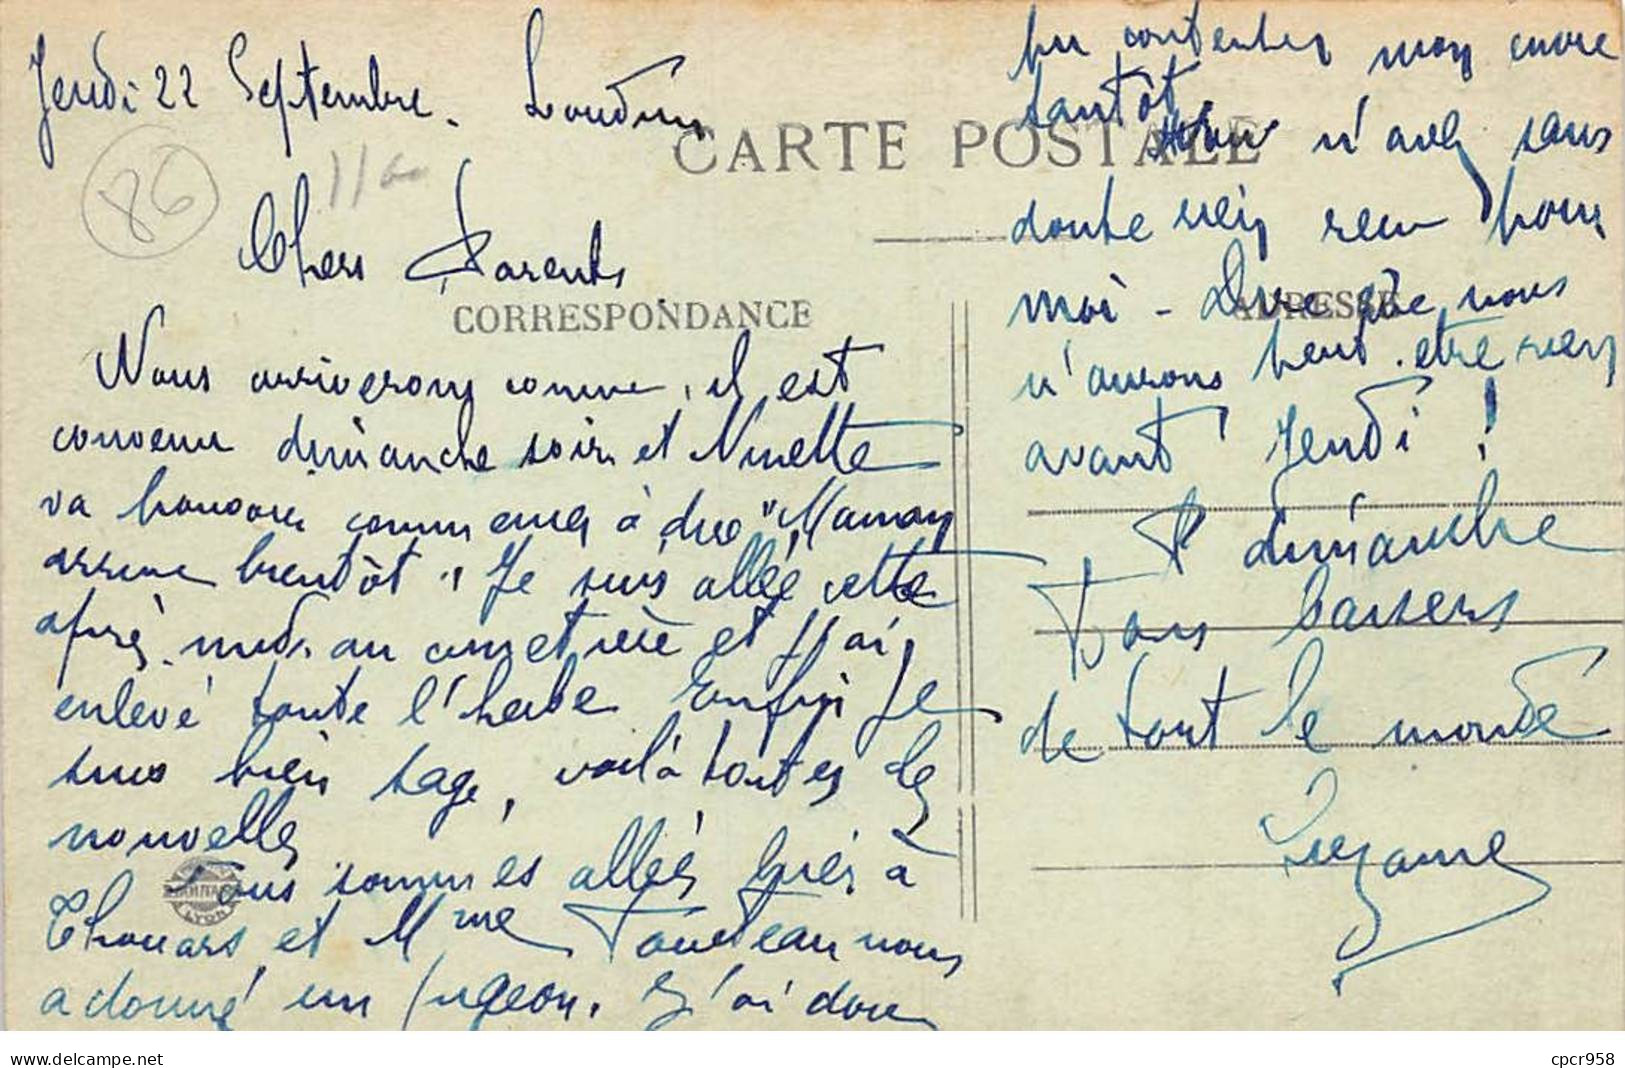 Jeudi 22 Septembre. Loudun
86
CARTE POSTALE
Chers Parents
CORRESPONDANCE
Nous arriverons comme il est
convenu dimanche soir et Ninette
va pouvoir commencer à dire "Maman
arrive bientôt". Je suis allée cette
après-midi au cimetière et j'ai
enlevé toute l'herbe Enfin je
suis bien sage, voilà toutes les
nouvelles
Nous sommes allés hier à
Thouars et Mme Touteau nous
a donné un pigeon. Et j'ai donc
pu contenter mon envie
tantôt
Vous n'avez sans
doute rien reçu pour
moi - Dire que nous
ADRESSE
n'aurons peut-être rien
avant Jeudi !
A dimanche
Bons baisers
de tout le monde
Suzanne
LYON
cpcr958
www.delcampe.net